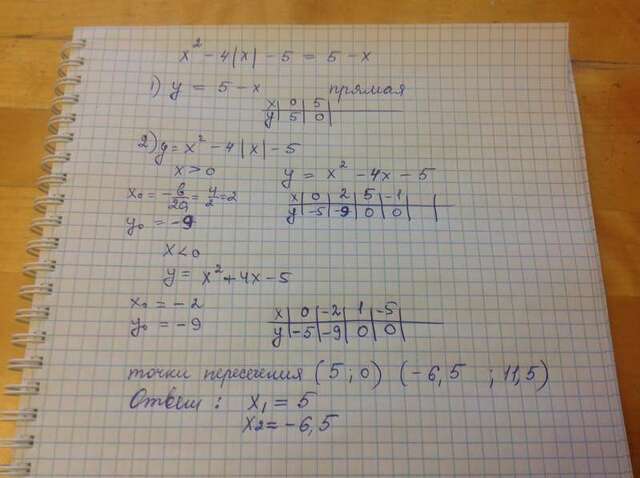 x² - 4|x| - 5 = 5 - x
1) y = 5 - x прямая
x | 0 | 5 |
y | 5 | 0 |
2) y = x² - 4|x| - 5
x > 0 y = x² - 4x - 5
x₀ = -b/2a = 4/2 = 2
x | 0 | 2 | 5 | -1 |
y | -5 | -9 | 0 | 0 |
y₀ = -9
x < 0
y = x² + 4x - 5
x₀ = -2
y₀ = -9
x | 0 | -2 | 1 | -5 |
y | -5 | -9 | 0 | 0 |
точки пересечения (5 ; 0) (-6,5 ; 11,5)
Ответ : x₁ = 5
x₂ = -6,5